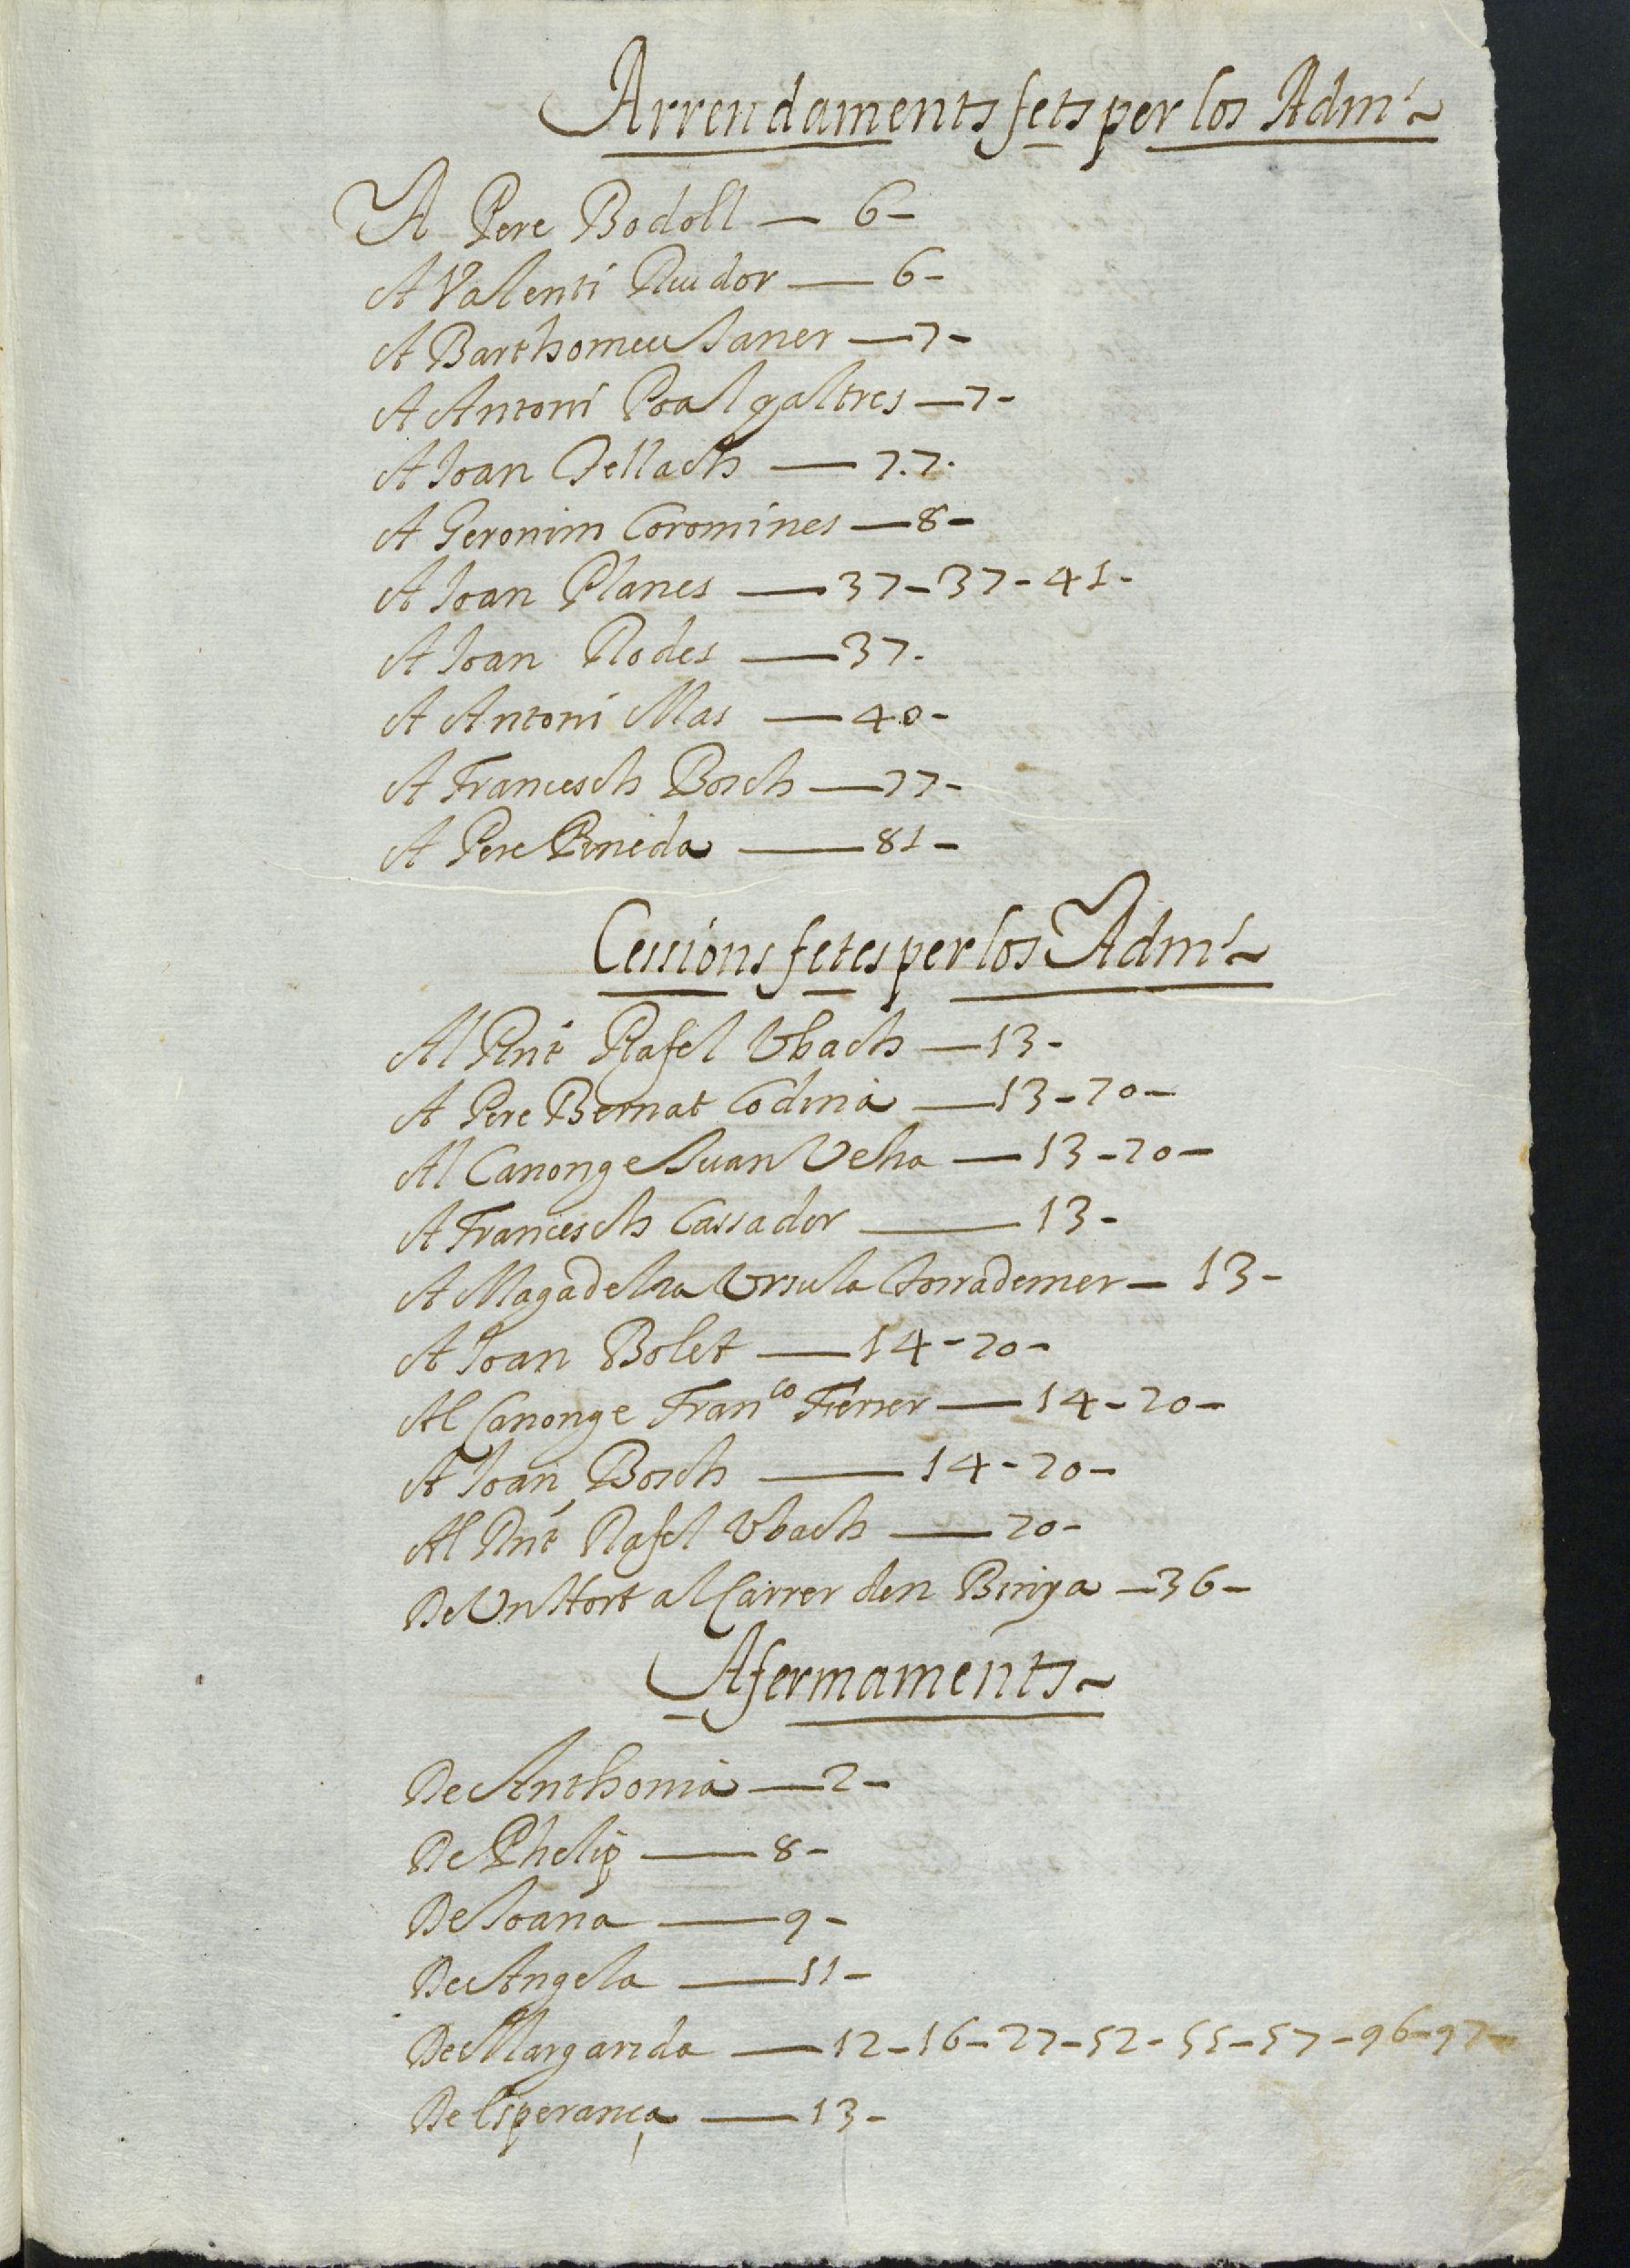 Arrendaments fets per los Adm.^s
A Pere Bodoll — 6 -
A Valenti Riudor — 6 -
A Barthomeu Janer — 7 -
A Antoni Poal y altres — 7 -
A Joan Gellach — 7. 7.
A Geronim Coromines — 8 -
A Joan Planes — 37 - 37 - 41 -
A Joan Rodes — 37.
A Antoni Mas — 40 -
A Francesch Bosch — 77 -
A Pere Pineda — 81 -
Cessions fetes per los Adm.^s
Al Rnt Rafel Ubach — 13 -
A Pere Bernat Codina — 13 - 20 -
Al Canonge Juan Velia — 13 - 20 -
A Francesch Cassador — 13 -
A Magadelna Ursula Torrademer — 13 -
A Joan Bolet — 14 - 20 -
Al Canonge Fran^co Ferrer — 14 - 20 -
A Joan Bosch — 14 - 20 -
Al Rnt Rafel Ubach — 20 -
De Un Hort al Carrer den — 36 -
Afermaments
De Anthonia — 2 -
De Phelip — 8 -
De Joana — 9 -
De Angela — 11 -
De Margarida — 12 - 16 - 27 - 52 - 55 - 57 - 96 - 97 -
De Esperança — 13 -